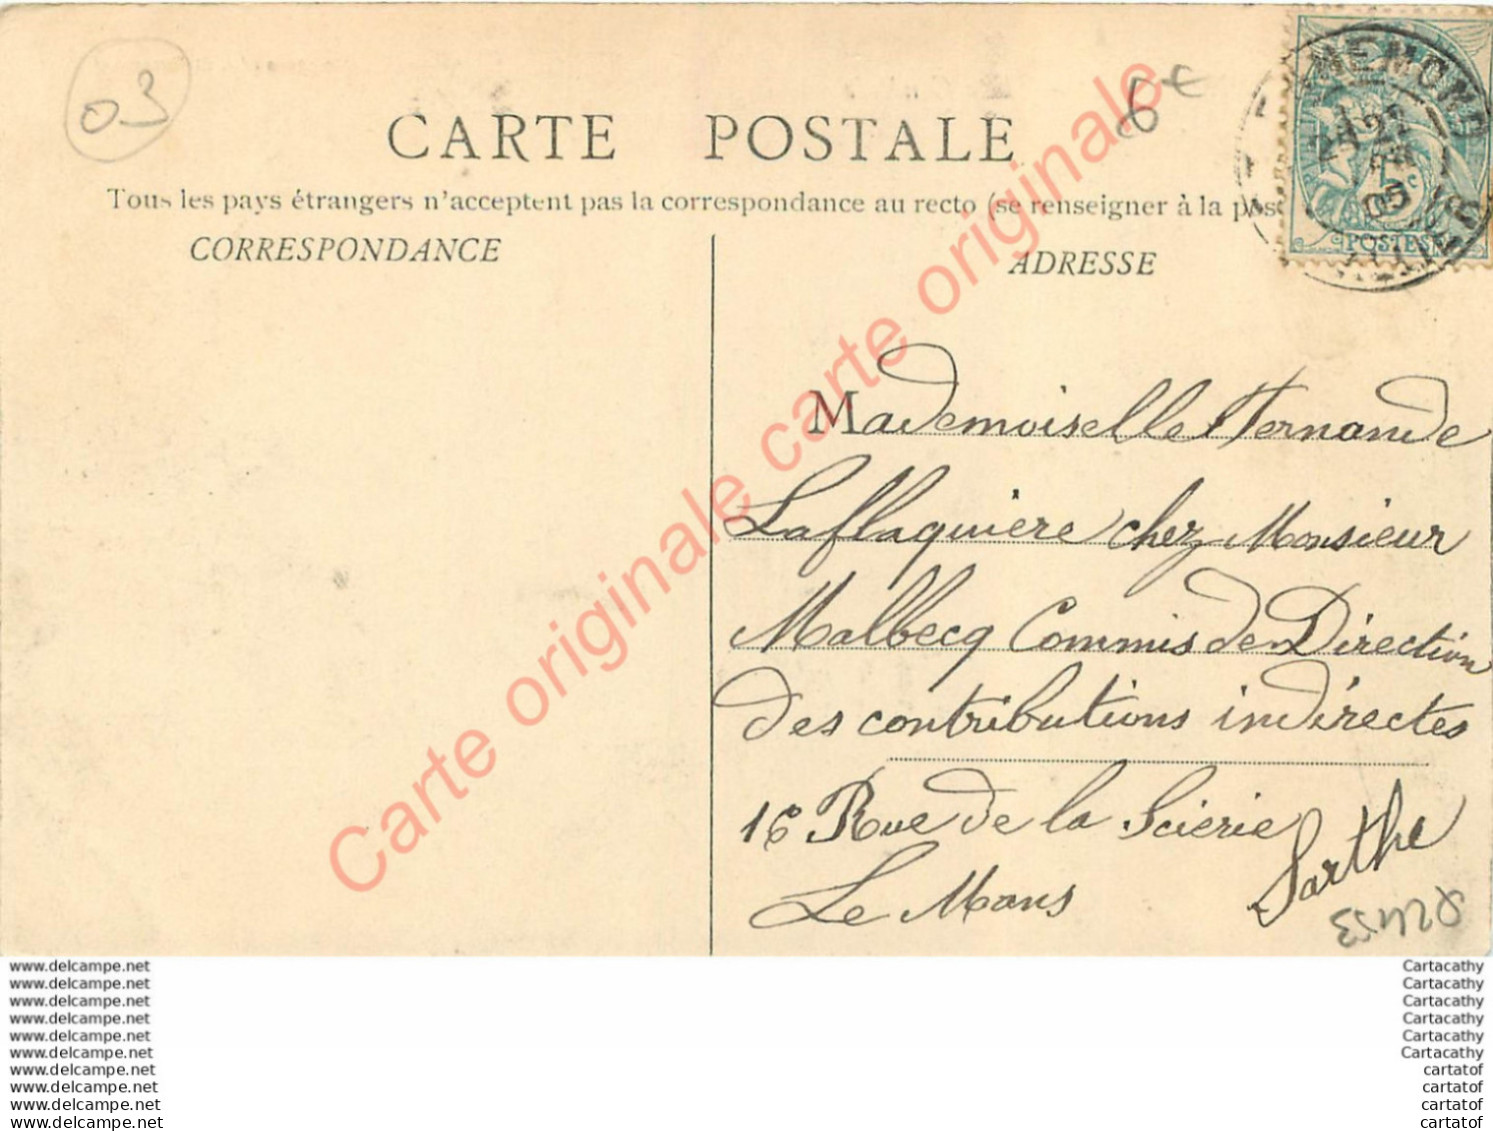 03
6€
CARTE POSTALE
Tous les pays étrangers n'acceptent pas la correspondance au recto (se renseigner à la pos
CORRESPONDANCE
ADRESSE
5c
POSTES
05
Mademoiselle Fernande
Laflaquière chez Monsieur
Malbecq Commis de Direction
des contributions indirectes
16 Rue de la Scierie
Le Mans
Sarthe
Carte originale carte originale
www.delcampe.net
www.delcampe.net
www.delcampe.net
www.delcampe.net
www.delcampe.net
www.delcampe.net
www.delcampe.net
www.delcampe.net
www.delcampe.net
www.delcampe.net
Cartacathy
Cartacathy
Cartacathy
Cartacathy
Cartacathy
Cartacathy
cartatof
cartatof
cartatof
cartatof